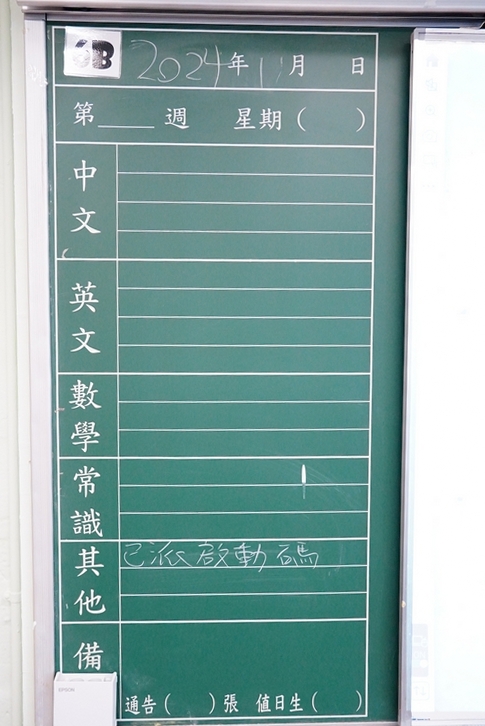 6B 2024年11月 日
第____週 星期( )
中文
英文
數學
常識
其他 已派啟動碼
備
通告( )張 值日生( )
EPSON